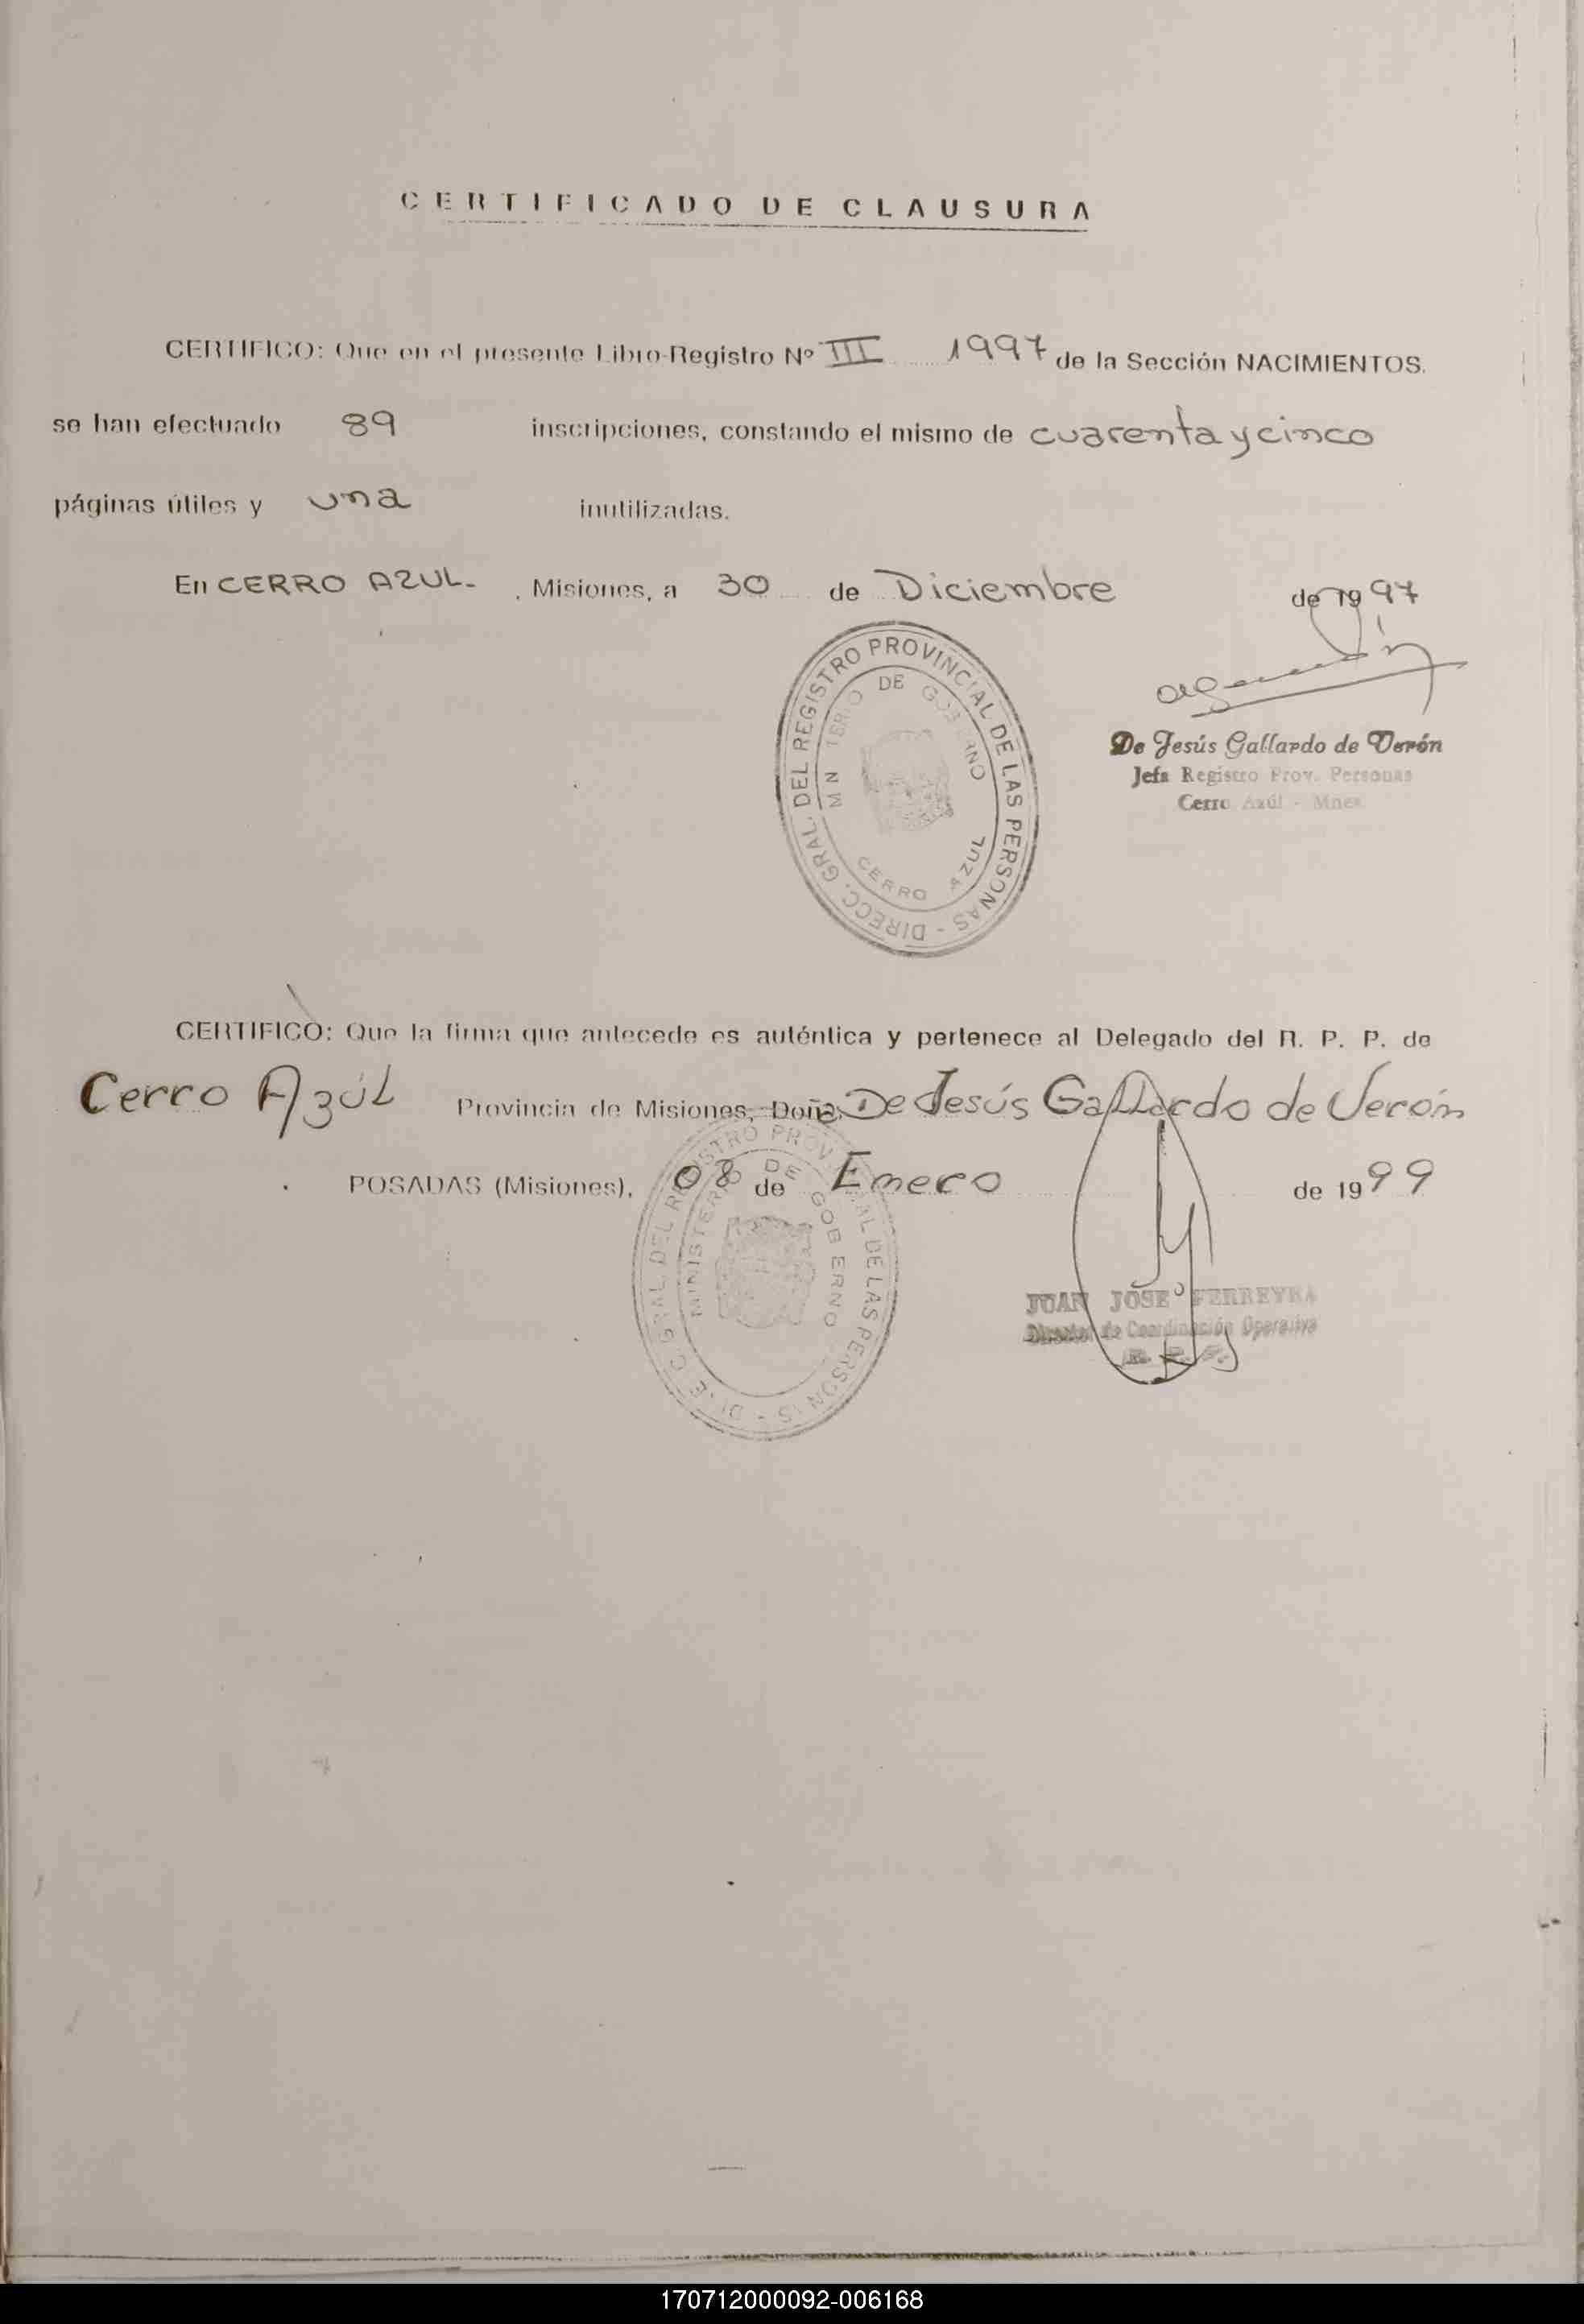 CERTIFICADO DE CLAUSURA
CERTIFICO: Que en el presente Libro-Registro Nº III 1997 de la Sección NACIMIENTOS.
se han efectuado 89 inscripciones, constando el mismo de cuarenta y cinco
páginas útiles y una inutilizadas.
En CERRO AZUL. , Misiones, a 30 de Diciembre de 1997
DIRECC. GRAL. DEL REGISTRO PROVINCIAL DE LAS PERSONAS -
MINISTERIO DE GOBIERNO
CERRO AZUL
De Jesús Gallardo de Verón
Jefa Registro Prov. Personas
Cerro Azúl - Mnes
CERTIFICO: Que la firma que antecede es auténtica y pertenece al Delegado del R. P. P. de
Cerro Azúl Provincia de Misiones, Doña De Jesús Gallardo de Verón
POSADAS (Misiones), 08 de Enero de 1999
DIREC. GRAL. DEL REGISTRO PROVINCIAL DE LAS PERSONAS -
MINISTERIO DE GOBIERNO
JUAN JOSE FERREYRA
Director de Coordinación Operativa
R. P. P.
170712000092-006168